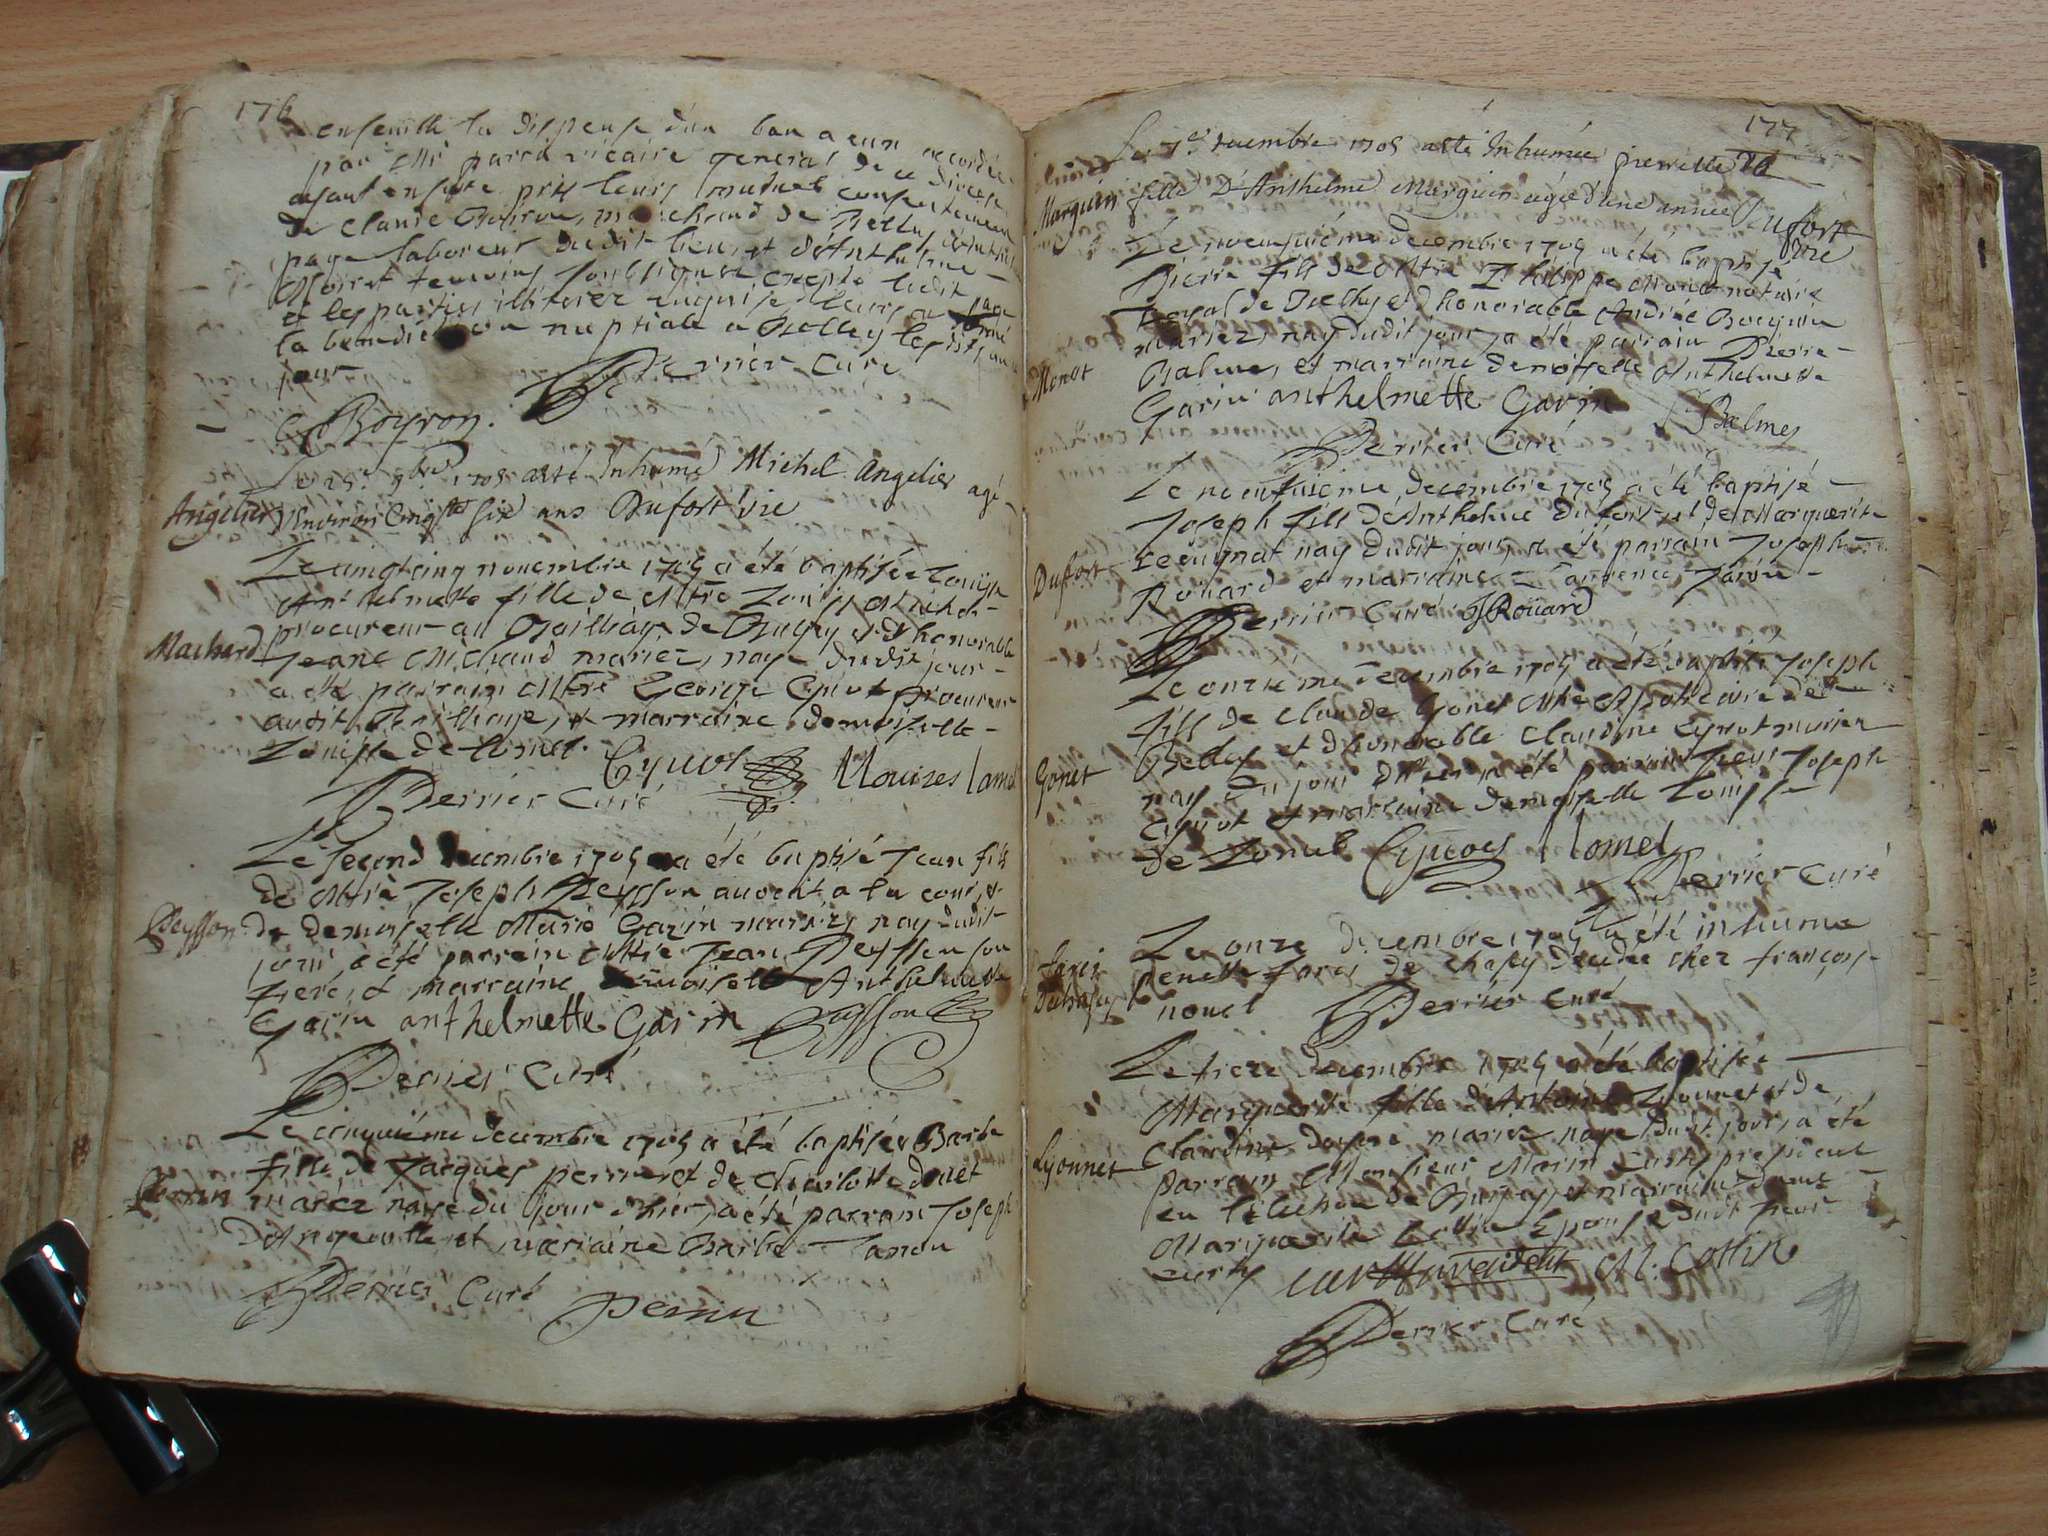 176
ensemble la dispense d'un ban a eux accordée
par Mr parra vicaire general de ce diocese
ayant ensuite pris leurs mutuels consentement
de claude Boyron, marchand de Belley
page laboreur dudit lieu, et d'Anthelme
et temoins soubsignez excepté ledit page
et les parties illiterez enquis
la benediction nuptiale a Belley les dits an
jour
Perrier Curé
C Boyron.
Le 25e 9bre 1705 a esté Inhumé Michel Angelier agé
Angelier d'environ cinqte six ans Dufort vic
Le vingtcinq novembre 1705 a été baptisée Louise
Anthelmette fille de Mtre Louis Michard
Machard procureur au Bailliage de Bugey et d'honnorable
Jeane Michaud mariez, naye dudit jour
a été parrain Mtre George Cyvot procureur
audit Bailliage, et marraine demoiselle
Louise de Lomel. Cyvot Louize s lamel
Perrier Curé
Le second decembre 1705 a été baptisé Jean fils
de Mtre Joseph Peysson avocat a la cour, et
Peysson de demoiselle Marie Garin mariez nay dudit
jour a été parrein Mtre Jean Peysson son
frere, et marraine demoiselle Anthelmette
Garin anthelmette Garin Peysson
Perrier Curé
Le cinquiéme decembre 1705 a été baptisée Barbe
fille de Jacques perrin et de Charlotte douet
Perrin mariez naye du jour d'hier, a été parrain Joseph
D'Angeville et marraine Barbe
Perrier Curé Perrin
177
Le 7e decembre 1705 a esté Inhumée pierrette
Marguin fille D'Anthelme Marguin agée d'une année Dufort
vic
Le neufviéme decembre 1705 a été baptisé
Pierre fils de Mtre Philippe Monet notaire
royal de Belley et d'honorable Andrée Boeyron
mariez, nay dudit jour, a été parrain Pierre
Monet Balme, et marraine demoiselle Anthelmette
Garin anthelmette Garin P Balmes
Perrier Curé
Le neufviéme decembre 1705 a été baptisé
Joseph fils d'Anthelme Dufort et de Marguerite
Dufort nay dudit jour, a été parrain Joseph
Roüard et marraine Laurence
Perrier Curé J Roüard
Le onziéme decembre 1705 a été baptisé Joseph
fils de claude Gonet Mtre Apothicaire de
Belley et d'honorable Claudine Cyvot mariez
Gonet nay du jour d'hier a été parrain sieur Joseph
Cyvot et marraine demoiselle Louise
de Lomel Cyvot l lomel
Perrier Curé
Le onze decembre 1705 a été inhumé
farci
benette farci de chasey decedée chez françois
nouet Perrier Curé
Le treze decembre 1705 a été baptisée
Marguerite fille d'Antoine Lyonnet et de
Claudine mariez naye dudit jour, a été
Lyonnet parrain Monsieur Marin Curty president
en l'election de Bugey, et marraine dame
Marguerite Cottin Epouse dudit sieur
curty M. Cottin
Perrier Curé